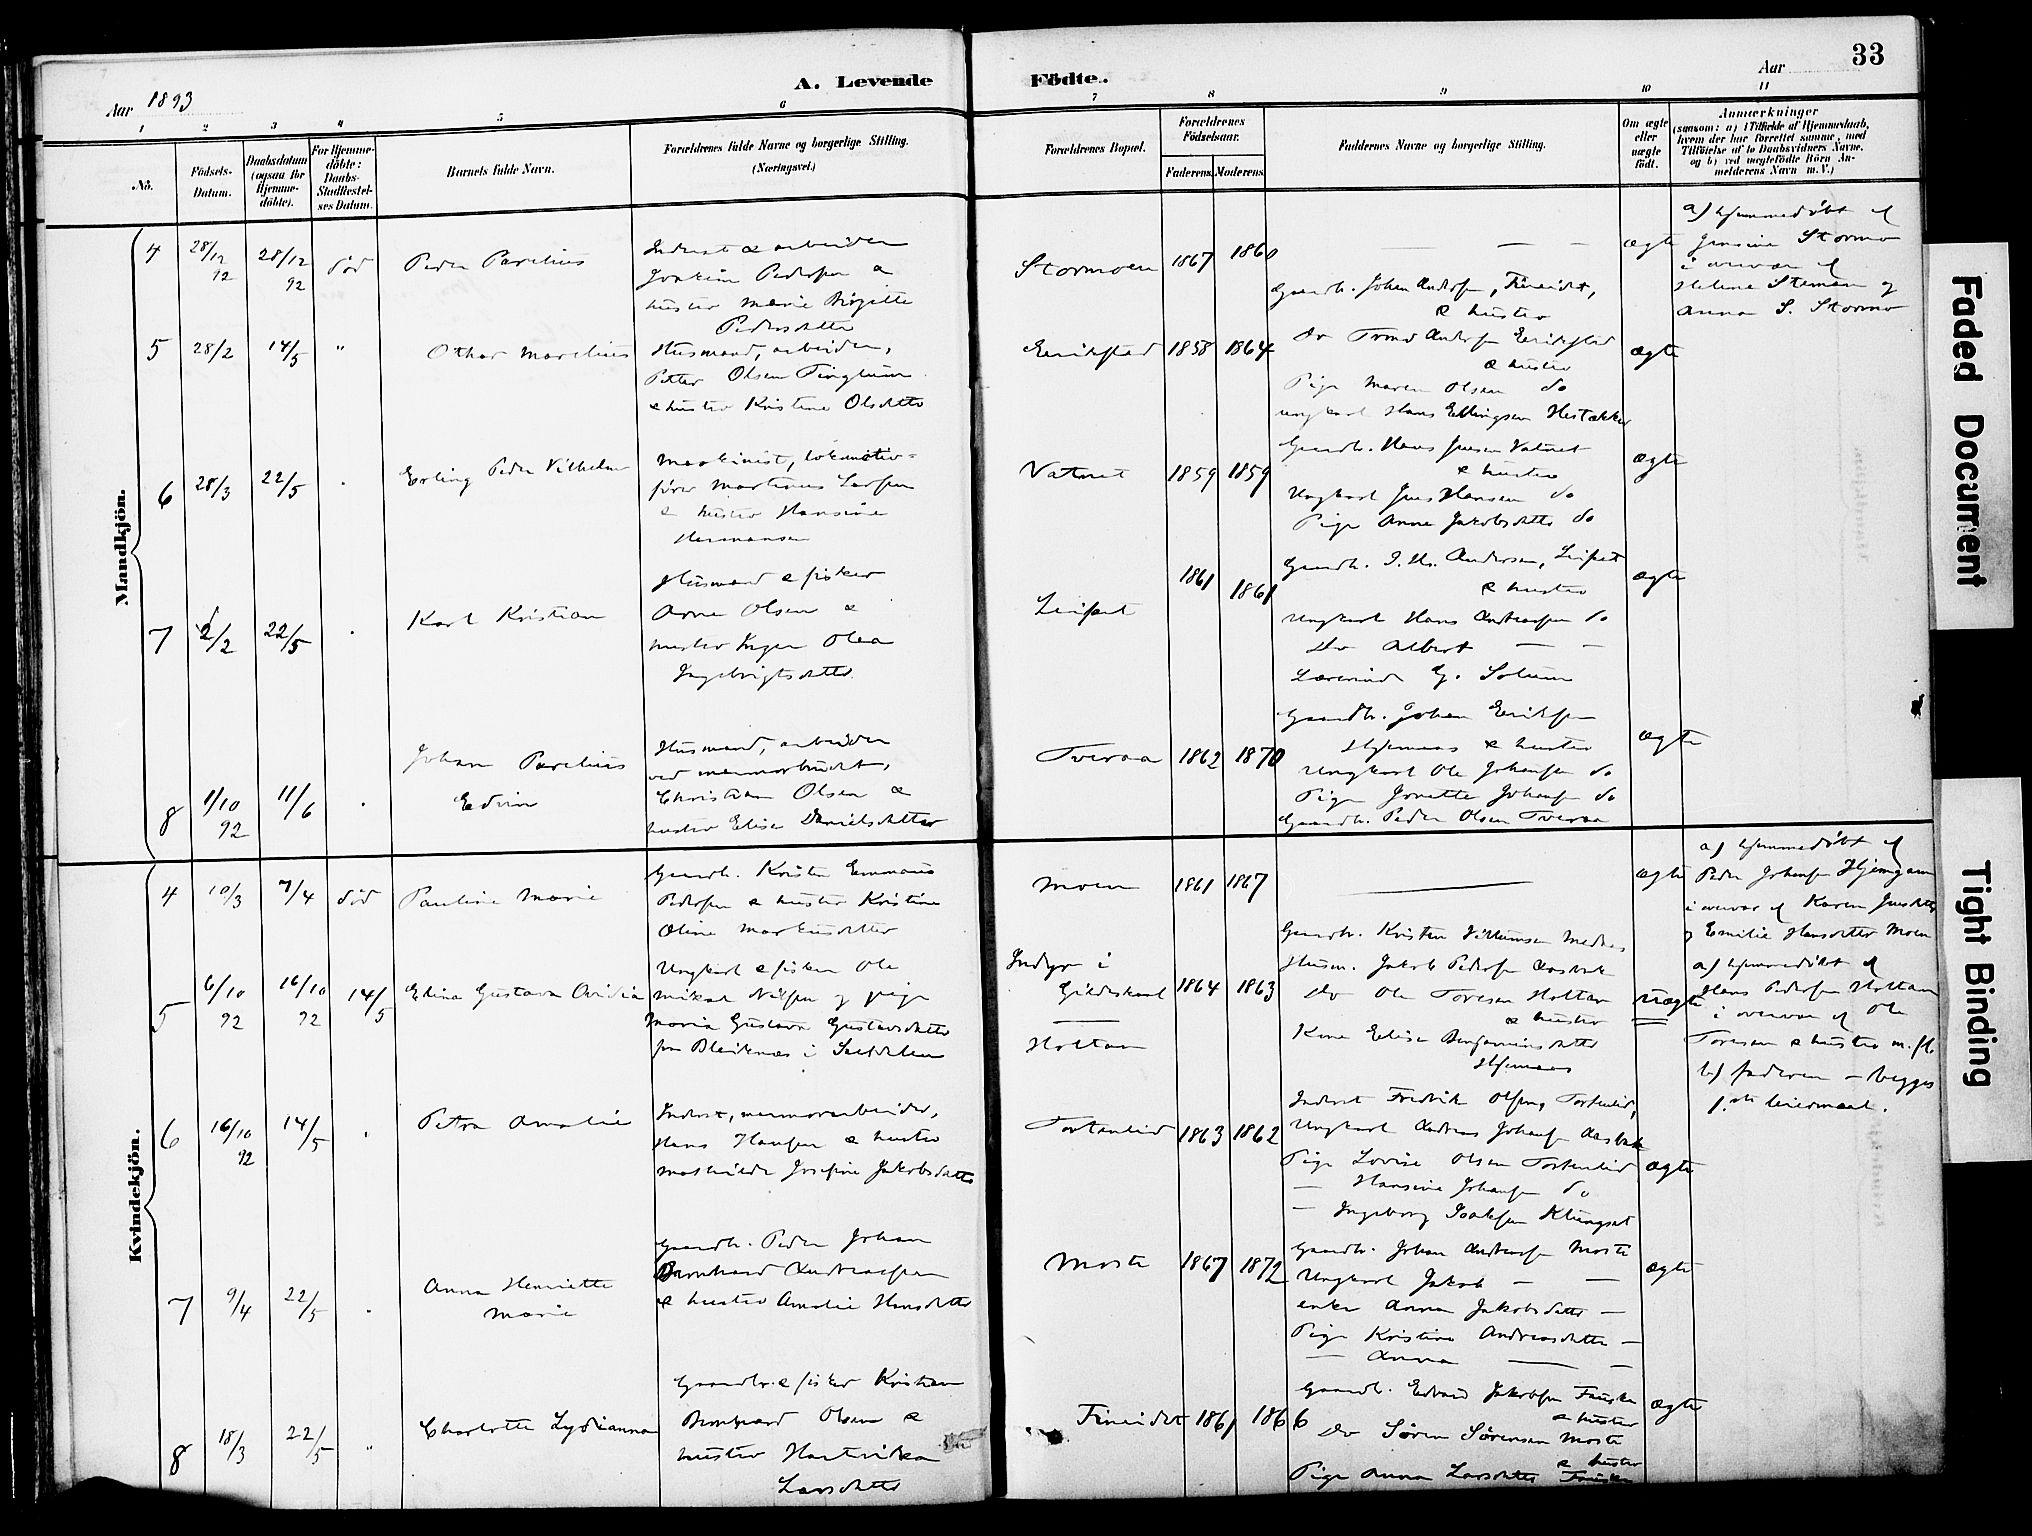 33
A. Levende Fødte.
Aar 1893
Aar
1 2 3 4 5 6 7 8 9 10 11
No.
Fødsels-Datum.
Daabsdatum (ogsaa for Hjemme-døbte).
For Hjemme-døbte: Daabs-Stadfæstel-ses Datum.
Barnets fulde Navn.
Forældrenes fulde Navne og borgerlige Stilling. (Næringsvei.)
Forældrenes Bopæl.
Forældrenes Fødselsaar.
Faderens. Moderens.
Faddernes Navne og borgerlige Stilling.
Om ægte eller uægte født.
Anmærkninger
(saasom: a) i Tilfælde af Hjemmedaab, hvem der har forrettet samme, med Tilføielse af to Daabsvidners Navne, og b) ved uægtefødte Børn An-melderens Navn m. V.)
Mandkjøn.
4 28/12 92 28/12 92 død Peder Parelius
Inderst & arbeider
Joakim Pedersen &
hustro Marie Birgitte
Pedersdatter
Stormoen 1867 1860 — — — ægte
a) hjemmedøbt af
Jensine Stormo
i overvær af
Helena Steman og
Anna S. Stormo
5 28/2 14/5 " Othar Marelius
Husmand, arbeider,
Petter Olsen
& hustro Kristine Olsdatter
Erikstad 1858 1864
Gaardbr. Johan Anders, Fineidet,
& hustro
do Trond Anders Erikstad
& hustro
Pige Maren Olsen do
Ungkarl Hans Ellingsen
ægte
6 28/3 22/5 Erling Peder Vilhelm
Maskinist, lokomotiv=
fører Martinus Larsen
& hustro Hansine
Hermansen
Vatnet 1859 1859
Gaardbr. Hans Jensen Vatnet
& hustro
Ungkarl Jens Hansen do
Pige Anne Jakobsdatter do
ægte
7 2/2 22/5 Karl Kristian
Husmand & fisker
Arne Olsen &
hustro Inger Olea
Ingebrigtsdatter.
Leifset 1861 1861
Gaardbr. J. H. Andersen, Leifset
& hustro
Ungkarl Hans Andreasen do
do Albert — —
Lærerinde G. Solum
ægte
8 1/10 92 11/6 Johan Parelius
Edvin
Husmand, arbeider
ved marmorbrudet,
Christian Olsen &
hustro Elise Danielsdatter
Tveraa 1862 1870
Gaardbr. Johan Eriksen
Hjemaas & hustro
Ungkarl Ole Johansen do
Pige Jonette Johans do
Gaardbr. Peder Olsen Tveraa
ægte
Kvindekjøn.
4 10/3 7/4 død Pauline Marie
Gaardb. Kristen Emmaus
Pedersen & hustro Kristine
Oline Markusdatter
Moen 1861 1867 — ægte
a) hjemmedøbt af
Peder Johansen
i overvær af Karen Jensdatter
og Emilie Hansdatter Moen
5 6/10 92 16/10 92 14/5 Elina Gustava Ovidia
Ungkarl & fisker Ole
Mikal Nilsen og pige
Maria Gustava Gustavsdatter
fra Bleiknes i Saltdalen
Indyr i
Gildeskaal
Holtan
1864 1863
Gaardbr. Kristen Villumsen
Husm. Jakob Peders Aasbak
do Ole Toresen Holtan
& hustro
Kone Elise Benjaminsdatter
Hjemaas
uægte
a) hjemmedøbt af
Hans Pedersen Holtan
i overvær af Ole
Toresen & hustro m. fl.
b) faderen — begges
1.ste leiermaal.
6 16/10 92 14/5 Petra Amalie
Inderst, marmorarbeider,
Hans Hansen & hustro
Mathilde Josefine Jakobsdatter
Tortenlid 1863 1862
Inderst Fredrik Olsen, Tortenlid,
Ungkarl Andreas Johans Aasbak
Pige Lovise Olsen Tortenlid
— Hansine Johansen do
— Ingeborg Isaksen Klungset
ægte
7 9/4 22/5 Anna Henriette
Marie
Gaardbr. Peder Johan
Bernhard Andreassen
& hustro Amalie Hansdatter
Moste 1867 1872
Gaardbr. Johan Andreas Moste
Ungkarl Jakob — —
enke Anna Jakobsdatter —
Pige Kristine Andreasdatter —
— Anna — —
ægte
8 18/3 22/5 " Charlotte Lydianna
Gaardbr. & fisker Kristian
Bernhard Olsen &
hustro Hartvikka
Larsdatter
Finneidet 1861 1866
Gaardb. Edvard Jakobsen Fauske
& hustro
do Søren Sørensen Moste
& hustro
Pige Anna Larsdatter Fauske
ægte
Faded Document
Tight Binding